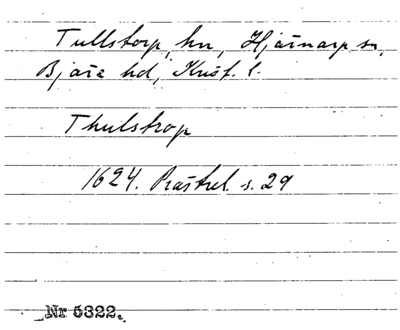 Tullstorp, hn, Hjärnarp sn,
Bjäre hd, Krist. l.
Thulstrop
1624. Prästrel. s. 29
Nr 5322.